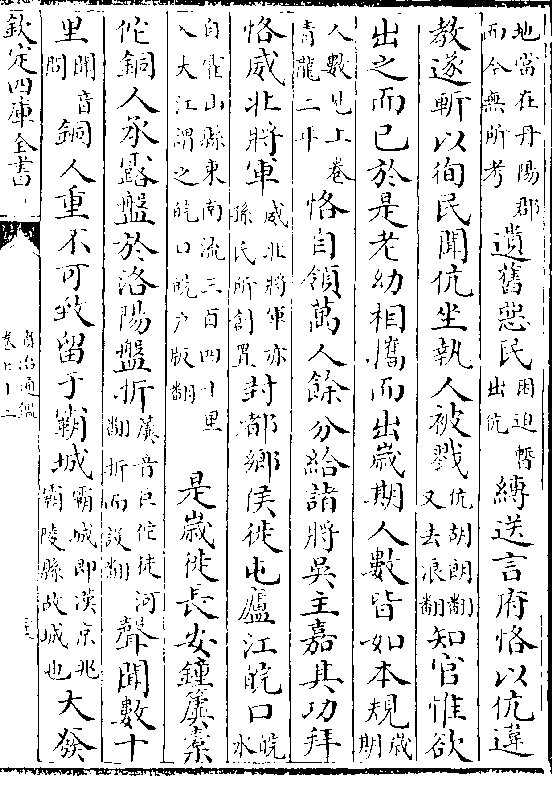 地當在丹陽郡
而今無所考
遺舊惡民
困迫暫
出伉
縛送言府恪以伉違
教遂斬以徇民聞伉坐執人被戮
伉胡朗翻
又去浪翻
知官惟欲
出之而已於是老幼相攜而出歲期人數皆如本規
歲期
人數見上卷
青龍二年
恪自領萬人餘分給諸將吳主嘉其功拜
恪威北將軍
威北將軍亦
孫氏所創置
封都鄉侯徙屯廬江皖口
皖水
自霍山縣東南流三百四十里
入大江謂之皖口皖户版翻
是歲徙長安鐘簴橐
佗銅人承露盤於洛陽盤折
簴音巨佗徒河
翻折而設翻
聲聞數十
里
聞音
問
銅人重不可致留于霸城
霸城即漢京兆
霸陵縣故城也
大發
欽定四庫全書
資治通鑑
卷七十三